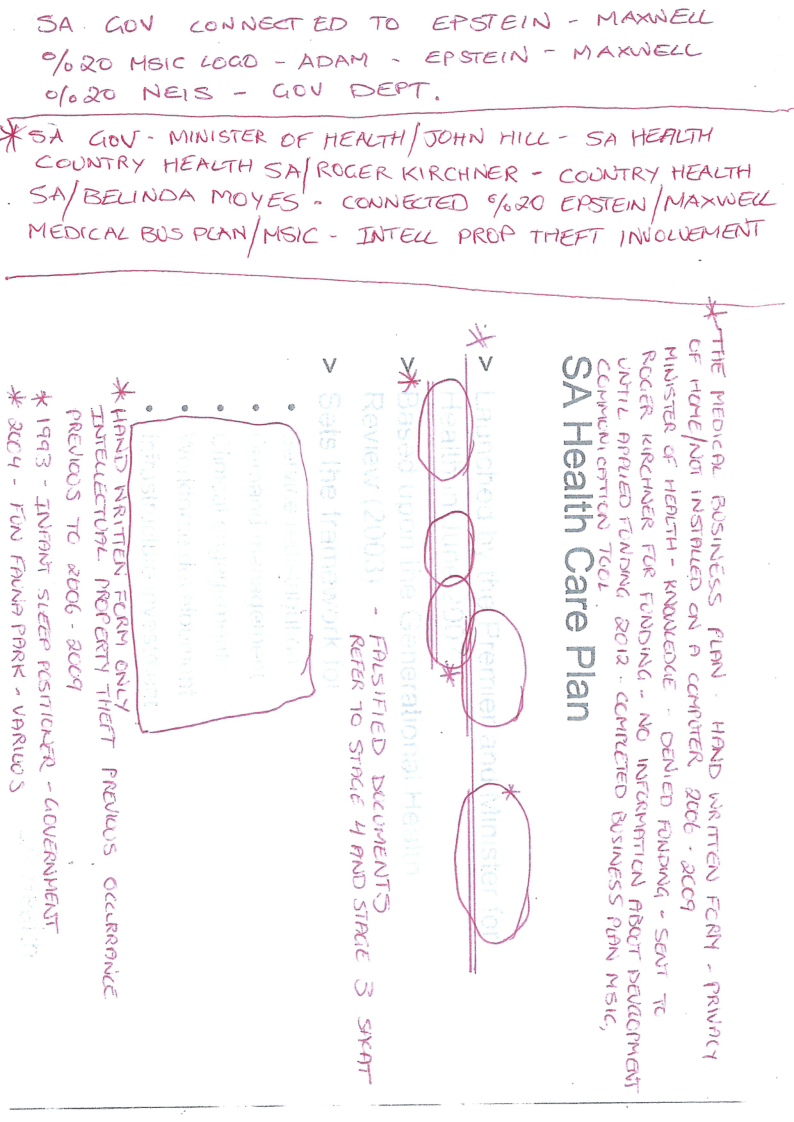 SA GOV CONNECTED TO EPSTEIN - MAXWELL
%20 MSIC LOGO - ADAM - EPSTEIN - MAXWELL
%20 NEIS - GOV DEPT.
* SA GOV - MINISTER OF HEALTH/JOHN HILL - SA HEALTH
COUNTRY HEALTH SA/ROGER KIRCHNER - COUNTRY HEALTH
SA/BELINDA MOYES - CONNECTED %20 EPSTEIN/MAXWELL
MEDICAL BUS PLAN/MSIC - INTELL PROP THEFT INVOLVEMENT
* THE MEDICAL BUSINESS PLAN - HAND WRITTEN FORM - PRIVACY
OF HOME/NOT INSTALLED ON A COMPUTER 2006 - 2009
MINISTER OF HEALTH - KNOWLEDGE - DENIED FUNDING - SENT TO
ROGER KIRCHNER FOR FUNDING - NO INFORMATION ABOUT DEVELOPMENT
UNTIL APPLIED FUNDING 2012 - COMPLETED BUSINESS PLAN MSIC,
COMMUNICATION TOOL.
SA Health Care Plan
* > Launched by the Premier and Minister for
Health in
> * Based upon the Generational Health
Review (2003) - FALSIFIED DOCUMENTS
REFER TO STAGE 4 AND STAGE 3 SACAT
> Sets the framework for
* HAND WRITTEN FORM ONLY
INTELLECTUAL PROPERTY THEFT PREVIOUS OCCURRANCE
PREVIOUS TO 2006 - 2009
* 1993 - INFANT SLEEP POSITIONER - GOVERNMENT
* 2004 - FUN FAUNA PARK - VARIOUS